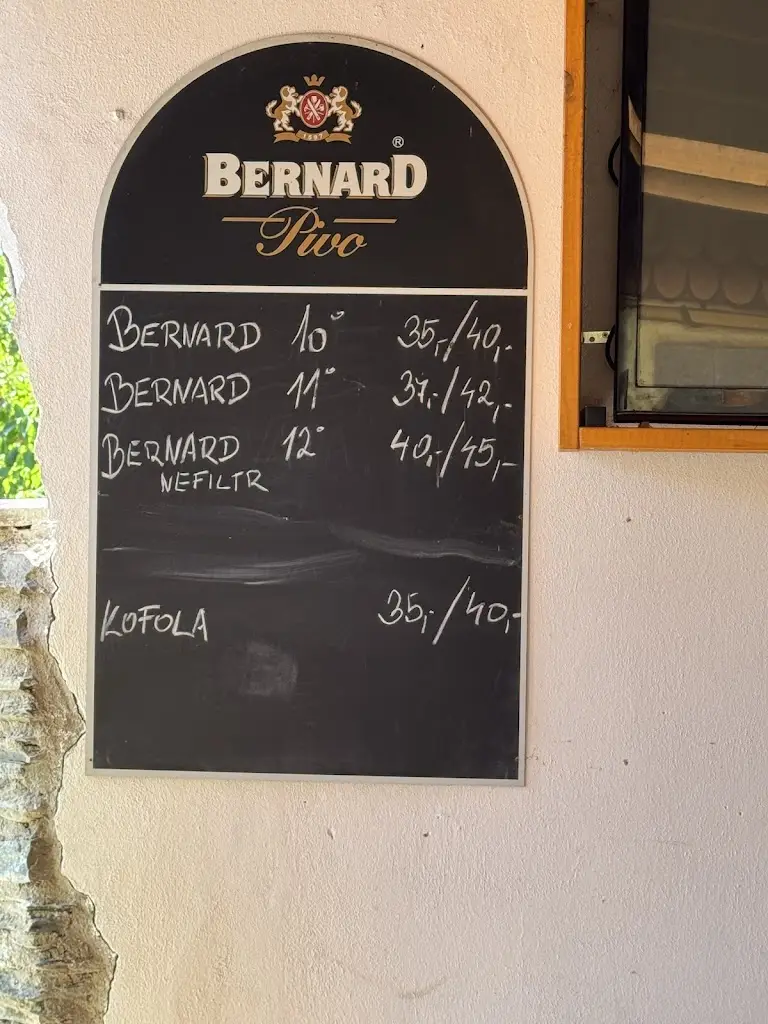 1597
BERNARD®
Pivo
BERNARD 10° 35,-/40,-
BERNARD 11° 37,-/42,-
BERNARD 12° 40,-/45,-
NEFILTR
KOFOLA 35,-/40,-